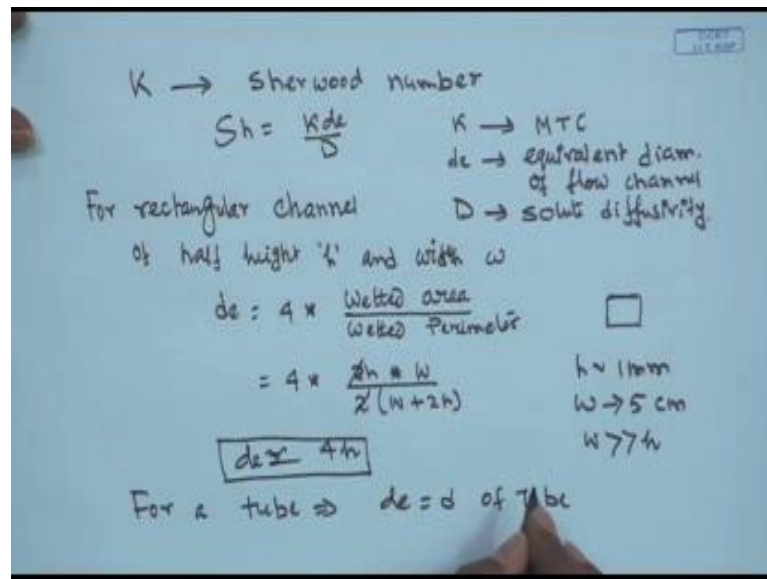 K → Sherwood number
Sh = Kde/D
K → MTC
de → equivalent diam. of flow channel
D → solute diffusivity
For rectangular channel
of half height 'h' and width w
de = 4 * Wetted area / Wetted Perimeter
= 4 * 2h * w / 2 (w + 2h)
h ~ 1mm
w → 5 cm
w >> h
de ≃ 4h
For a tube ⇒ de = d of tube